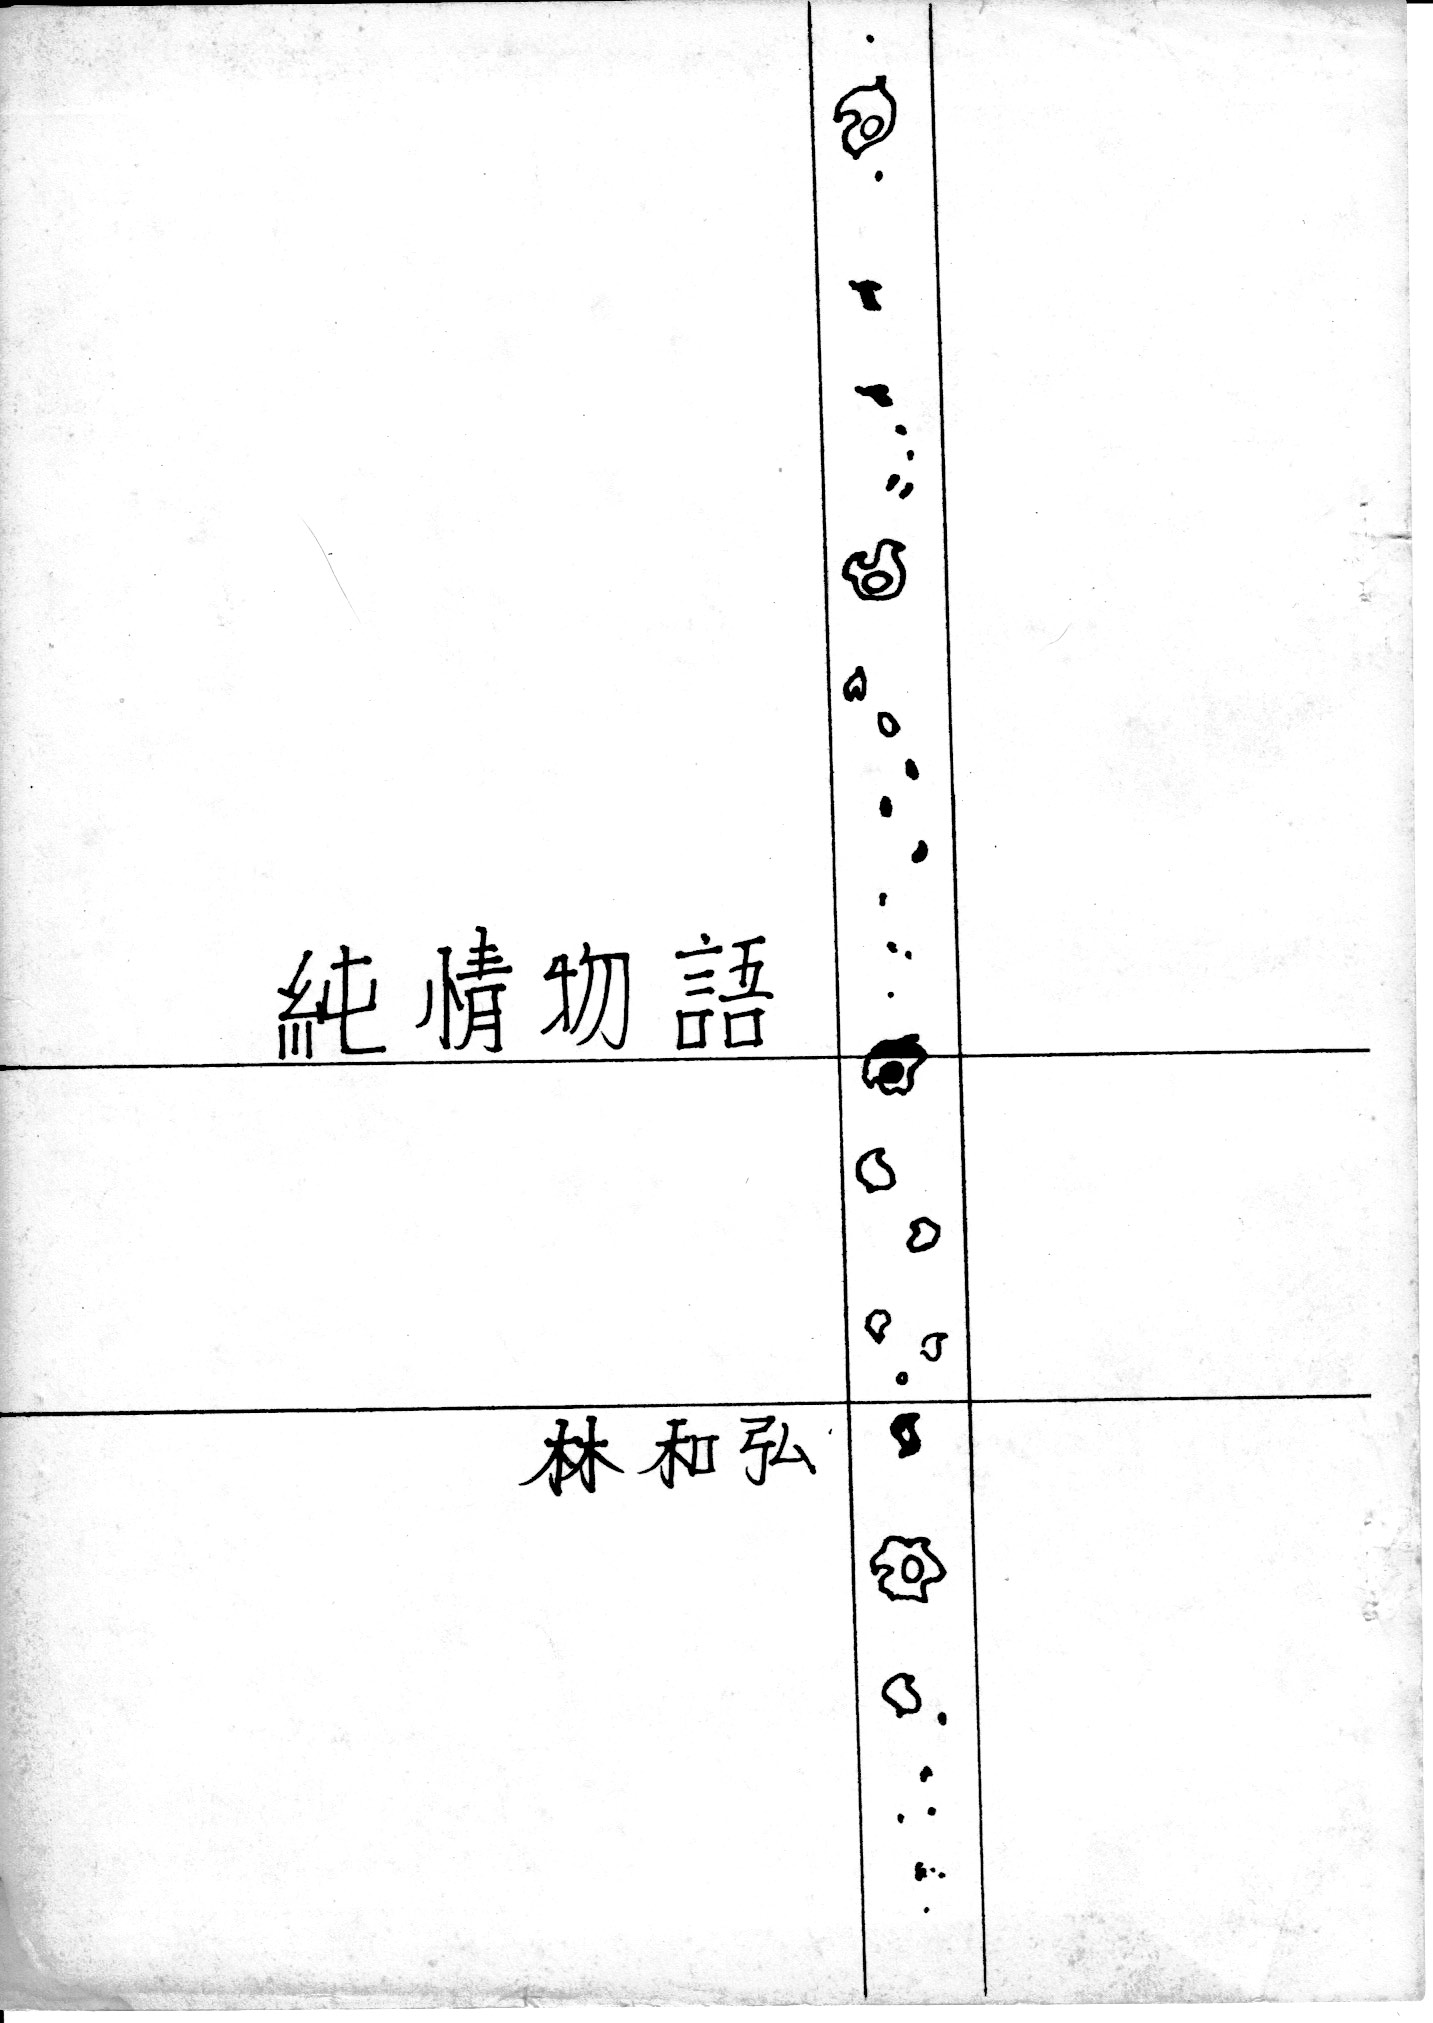 純情物語
林和弘